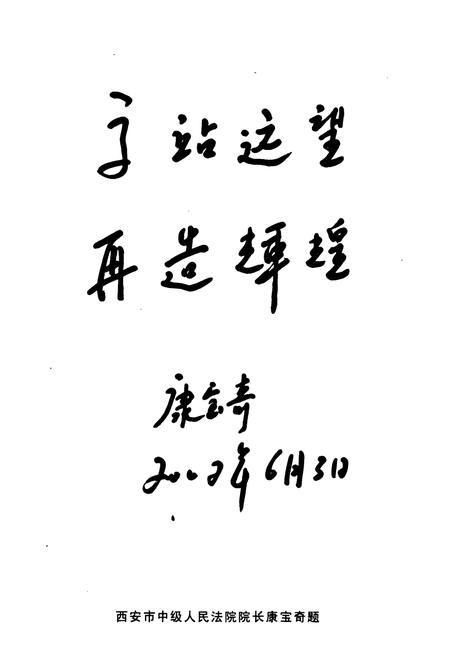 高站远望
再造辉煌
康宝奇
2002年6月3日
西安市中级人民法院院长康宝奇题